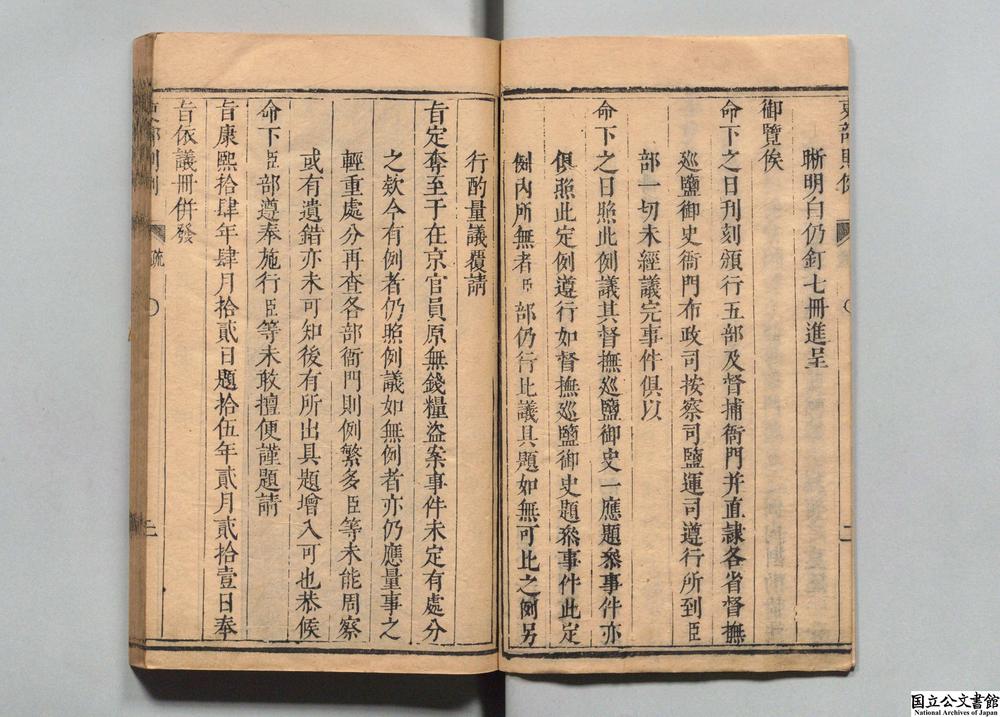 晣明白仍釘七冊進呈
御覽俟
命下之日刊刻頒行五部及督捕衙門并直隸各省督撫
巡鹽御史衙門布政司按察司鹽運司遵行所到臣
部一切未經議完事件俱以
命下之日照此例議其督撫巡鹽御史一應題叅事件亦
俱照此定例遵行如督撫巡鹽御史題叅事件此定
例內所無者臣部仍行比議具題如無可比之例另
行酌量議覆請
旨定奪至于在京官員原無錢糧盜案事件未定有處分
之欵今有例者仍照例議如無例者亦仍應量事之
輕重處分再查各部衙門則例繁多臣等未能周察
或有遺錯亦未可知後有所出具題增入可也恭候
命下臣部遵奉施行臣等未敢擅便謹題請
旨康熙拾肆年肆月拾貳日題拾伍年貳月貳拾壹日奉
旨依議冊併發
疏
二
二
国立公文書館
National Archives of Japan